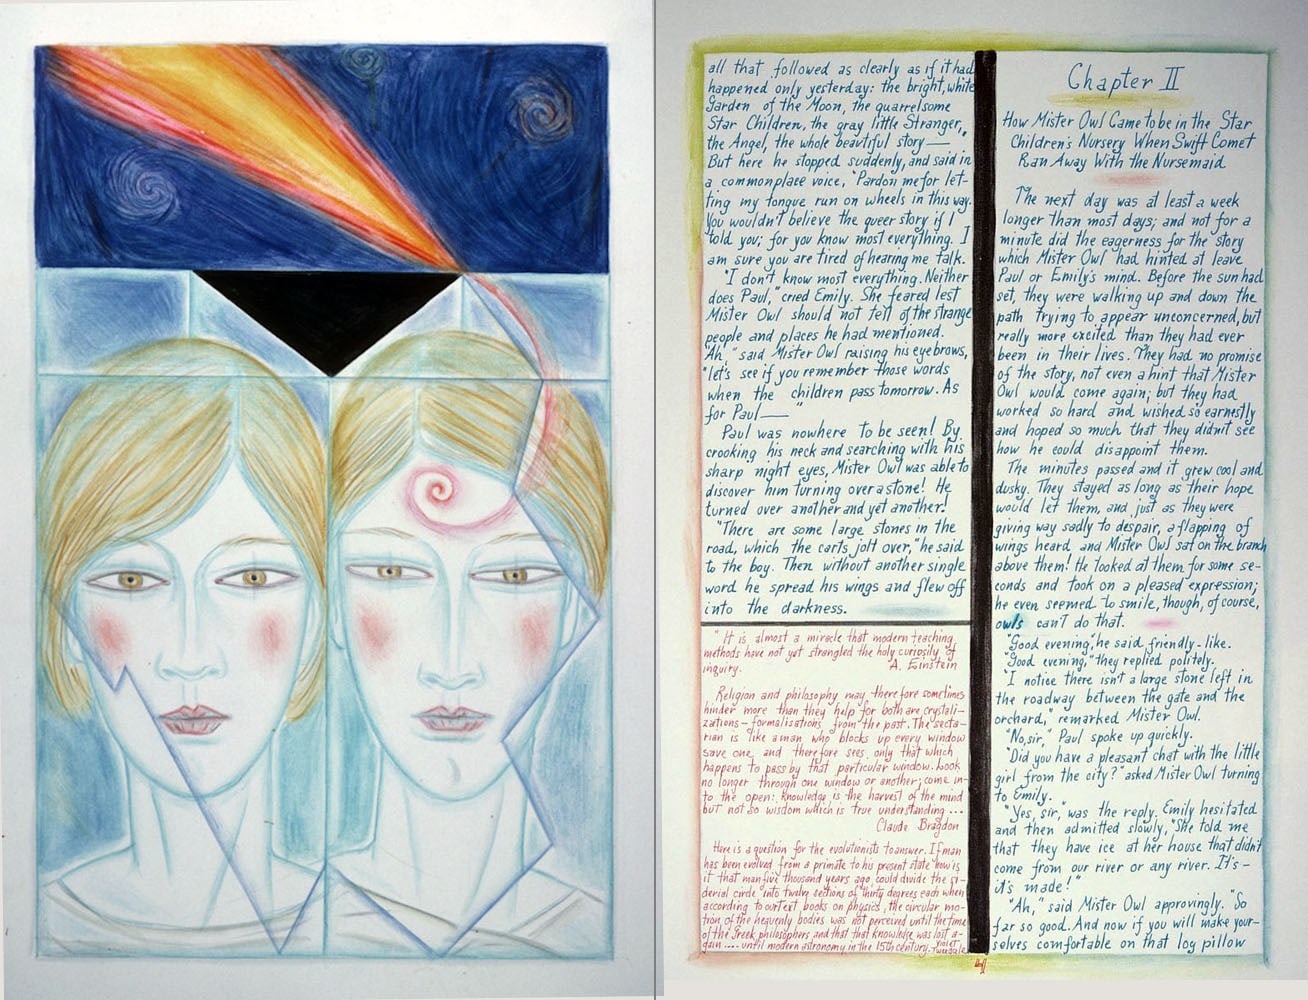 all that followed as clearly as if it had
happened only yesterday: the bright, white
Garden of the Moon, the quarrelsome
Star Children, the gray little Stranger,
the Angel, the whole beautiful story —
But here he stopped suddenly, and said in
a commonplace voice, "Pardon me for let-
ting my tongue run on wheels in this way.
You wouldn't believe the queer story if I
told you; for you know most everything. I
am sure you are tired of hearing me talk.
"I don't know most everything. Neither
does Paul," cried Emily. She feared lest
Mister Owl should not tell of the strange
people and places he had mentioned.
"Ah," said Mister Owl raising his eyebrows,
"let's see if you remember those words
when the children pass tomorrow. As
for Paul — "
Paul was nowhere to be seen! By
crooking his neck and searching with his
sharp night eyes, Mister Owl was able to
discover him turning over a stone! He
turned over another and yet another!
"There are some large stones in the
road, which the carts jolt over," he said
to the boy. Then without another single
word he spread his wings and flew off
into the darkness.
"It is almost a miracle that modern teaching
methods have not yet strangled the holy curiosity of
inquiry. A. Einstein
Religion and philosophy may therefore sometimes
hinder more than they help for both are crystali-
zations – formalisations from the past. The secta-
rian is like a man who blocks up every window
save one, and therefore sees only that which
happens to pass by that particular window. Look
no longer through one window or another; come in-
to the open: knowledge is the harvest of the mind
but not so wisdom which is true understanding ...
Claude Bragdon
Here is a question for the evolutionists to answer. If man
has been evolved from a primate to his present state how is
it that man five thousand years ago could divide the si-
derial circle into twelve sections of thirty degrees each when
according to our text books on physics, the circular mo-
tion of the heavenly bodies was not perceived until the time
of the Greek philosophers and that that knowledge was lost a-
gain .... until modern astronomy in the 15th century. Violet
Tweedale
Chapter II
How Mister Owl Came to be in the Star
Children's Nursery When Swift Comet
Ran Away With the Nursemaid
The next day was at least a week
longer than most days; and not for a
minute did the eagerness for the story
which Mister Owl had hinted at leave
Paul or Emily's mind. Before the sun had
set, they were walking up and down the
path trying to appear unconcerned, but
really more excited than they had ever
been in their lives. They had no promise
of the story, not even a hint that Mister
Owl would come again; but they had
worked so hard and wished so earnestly
and hoped so much that they didn't see
how he could disappoint them.
The minutes passed and it grew cool and
dusky. They stayed as long as their hope
would let them, and just as they were
giving way sadly to despair, a flapping of
wings heard and Mister Owl sat on the branch
above them! He looked at them for some se-
conds and took on a pleased expression;
he even seemed to smile, though, of course,
owls can't do that.
"Good evening," he said friendly-like.
"Good evening," they replied politely.
"I notice there isn't a large stone left in
the roadway between the gate and the
orchard," remarked Mister Owl.
"No, sir," Paul spoke up quickly.
"Did you have a pleasant chat with the little
girl from the city?" asked Mister Owl turning
to Emily.
"Yes, sir," was the reply. Emily hesitated
and then admitted slowly, "She told me
that they have ice at her house that didn't
come from our river or any river. It's –
it's made!"
"Ah," said Mister Owl approvingly. "So
far so good. And now if you will make your-
selves comfortable on that log pillow